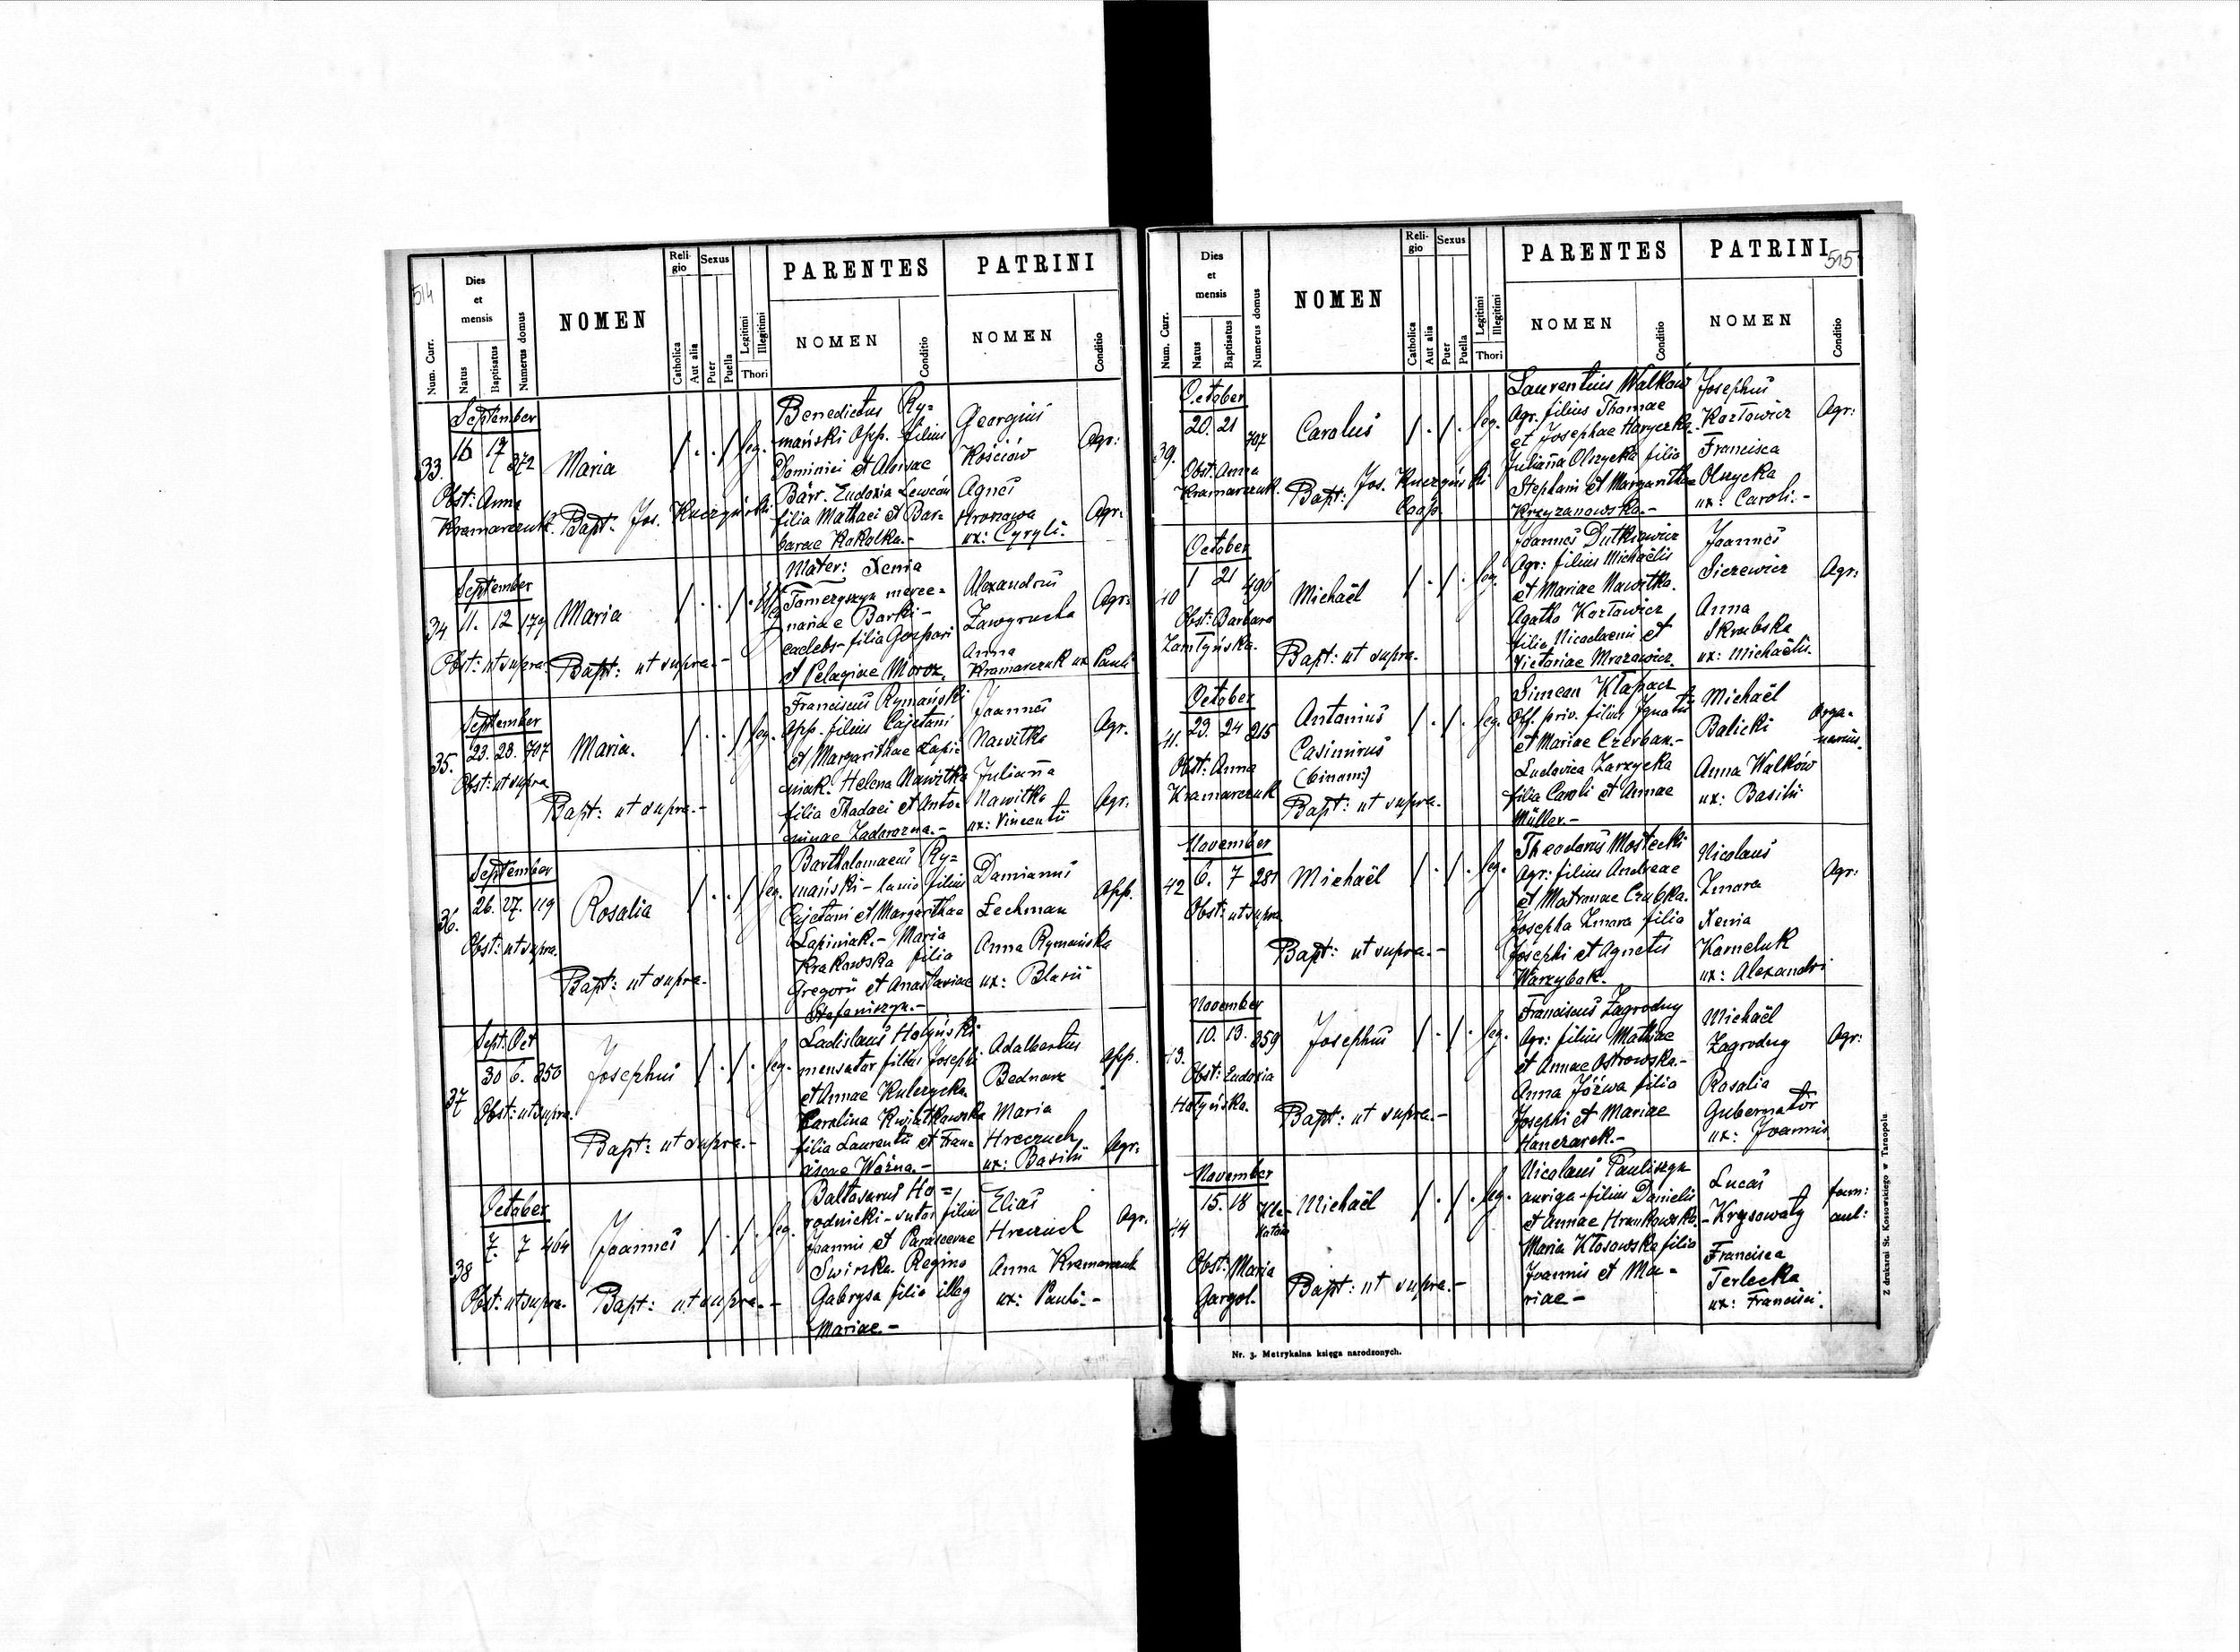 514
Num. Curr.
Dies et mensis
Natus
Baptisatus
Numerus domus
NOMEN
Religio
Catholica
Aut alia
Sexus
Puer
Puella
Legitimi
Illegitimi
Thori
PARENTES
NOMEN
Conditio
PATRINI
NOMEN
Conditio
33.
September
16 17 372
Obst: Anna
Kramarczuk.
Maria
Bapt. Jos. Kuczyński
leg.
Benedictus Ry=
mański Opp. filius
Dominici et Aloisae
Barr. Eudoxia Lewców
filia Mathaei et Bar=
barae Kakalka.-
Georgius
Kościów
Agr:
Agnes
Hronowa
ux: Cyryli.
Agr:
34
September
11. 12 179
Obst: ut supra.
Maria
Bapt: ut supra.-
Illeg
Mater: Xenia
Tomczyszyn merce=
naria e Barki-
cadebs- filia Gaspari
et Pelagiae Moroz.
Alexandrus
Zawyrucha
Agr.
Anna
Kramarczuk ux Pauli
35.
September
23. 28. 707
Obst: ut supra
Maria.
Bapt: ut supra.-
leg.
Franciscus Rymański
Opp. filius Cajetani
et Margarithae Łapi=
niak. Helena Nawitka
filia Thadaei et Anto=
ninae Zadorozna.-
Joannes
Nawitka
Agr.
Julianna
Nawitka
ux: Vincentii
Agr.
36.
September
26. 27. 119
Obst: ut supra.
Rosalia
Bapt: ut supra.
leg.
Bartholomaeus Ry=
mański - lanio filius
Cajetani et Margarithae
Łapiniak.- Maria
Krakowska filia
Gregorii et Anastasiae
Stefaniszyn.-
Damianus
Lechman
Opp.
Anna Rymańska
ux: Blasii
37
Sept: Oct
30 6. 350
Obst: ut supra.
Josephus
Bapt: ut supra.-
leg.
Ladislaus Hołyński
mensator filius Josephi
et Annae Kulczycka.
Karolina Kwiatkowska
filia Laurentii et Fran=
ciscae Woźna.-
Adalbertus
Bednarz
Opp.
Maria
Hreczuch
ux: Basilii
Agr.
38
October
7. 7 464
Obst: ut supra.
Joannes
Bapt: ut supra.-
leg.
Baltasarus Ho=
rodnicki - sutor filius
Joannis et Parascevae
Swirska. Regina
Gabrysa filia illeg
Mariae.-
Elias
Hreczuch
Agr.
Anna Kramarczuk
ux: Pauli.-
515
Num. Curr.
Dies et mensis
Natus
Baptisatus
Numerus domus
NOMEN
Religio
Catholica
Aut alia
Sexus
Puer
Puella
Legitimi
Illegitimi
Thori
PARENTES
NOMEN
Conditio
PATRINI
NOMEN
Conditio
39.
October
20. 21 707
Obst: Anna
Kramarczuk.
Carolus
Bapt: Jos. Kuczyński
Coop.
leg.
Laurentius Walków
Agr. filius Thomae
et Josephae Haryczka.
Julianna Olszycka filia
Stephani et Margarithae
Krzyzanowska.-
Josephus
Kozłowicz
Agr:
Francisca
Olszycka
ux: Caroli.-
40
October
1 21 496
Obst: Barbara
Zamłyńska.
Michaël
Bapt: ut supra.
leg.
Joannes Dutkiewicz
Agr: filius Michaëlis
et Mariae Nawitka.
Agatha Kozłowicz
filia Nicodaemi et
Victoriae Mrozowicz.
Joannes
Siczewicz
Agr:
Anna
Skrabska
ux: Michaëlis.
41.
October
23. 24 215
Obst: Anna
Kramarczuk
Antonius
Casimirus
(binom:)
Bapt: ut supra.
leg.
Simeon Kłapacz
Off. priv. filius Ignatii
et Mariae Czerban.-
Ludovica Zarzycka
filia Caroli et Annae
Müller.-
Michaël
Balicki
Orga=
narius.
Anna Walków
ux: Basilii
42
November
6. 7 281
Obst: ut supra
Michaël
Bapt: ut supra.-
leg.
Theodorus Mostecki
Agr: filius Andreae
et Matronae Czubka.
Josepha Zmora filia
Josephi et Agnetis
Warzybok.
Nicolaus
Zmora
Agr:
Xenia
Kameluk
ux: Alexandri
43.
November
10. 13. 359
Obst: Eudoxia
Hołyńska.
Josephus
Bapt: ut supra.-
leg.
Franciscus Zagrodny
Agr: filius Mathiae
et Annae Ostrowska.-
Anna Józwa filia
Josephi et Mariae
Hanczarek.-
Michaël
Zagrodny
Agr:
Rosalia
Gubernator
ux: Joannis
44
November
15. 18
Obst: Maria
Gargol.
Michaël
Bapt: ut supra.-
leg.
Nicolaus Pauliszyn
auriga - filius Danielis
et Annae Hrankowska.-
Maria Kłosowska filia
Joannis et Ma=
riae -
Lucas
Krysowaty
fam:
aul:
Francisca
Terlecka
ux: Francisci.
Nr. 3. Metrykalna księga narodzonych.
Z drukarni St. Kossowskiego w Tarnopolu